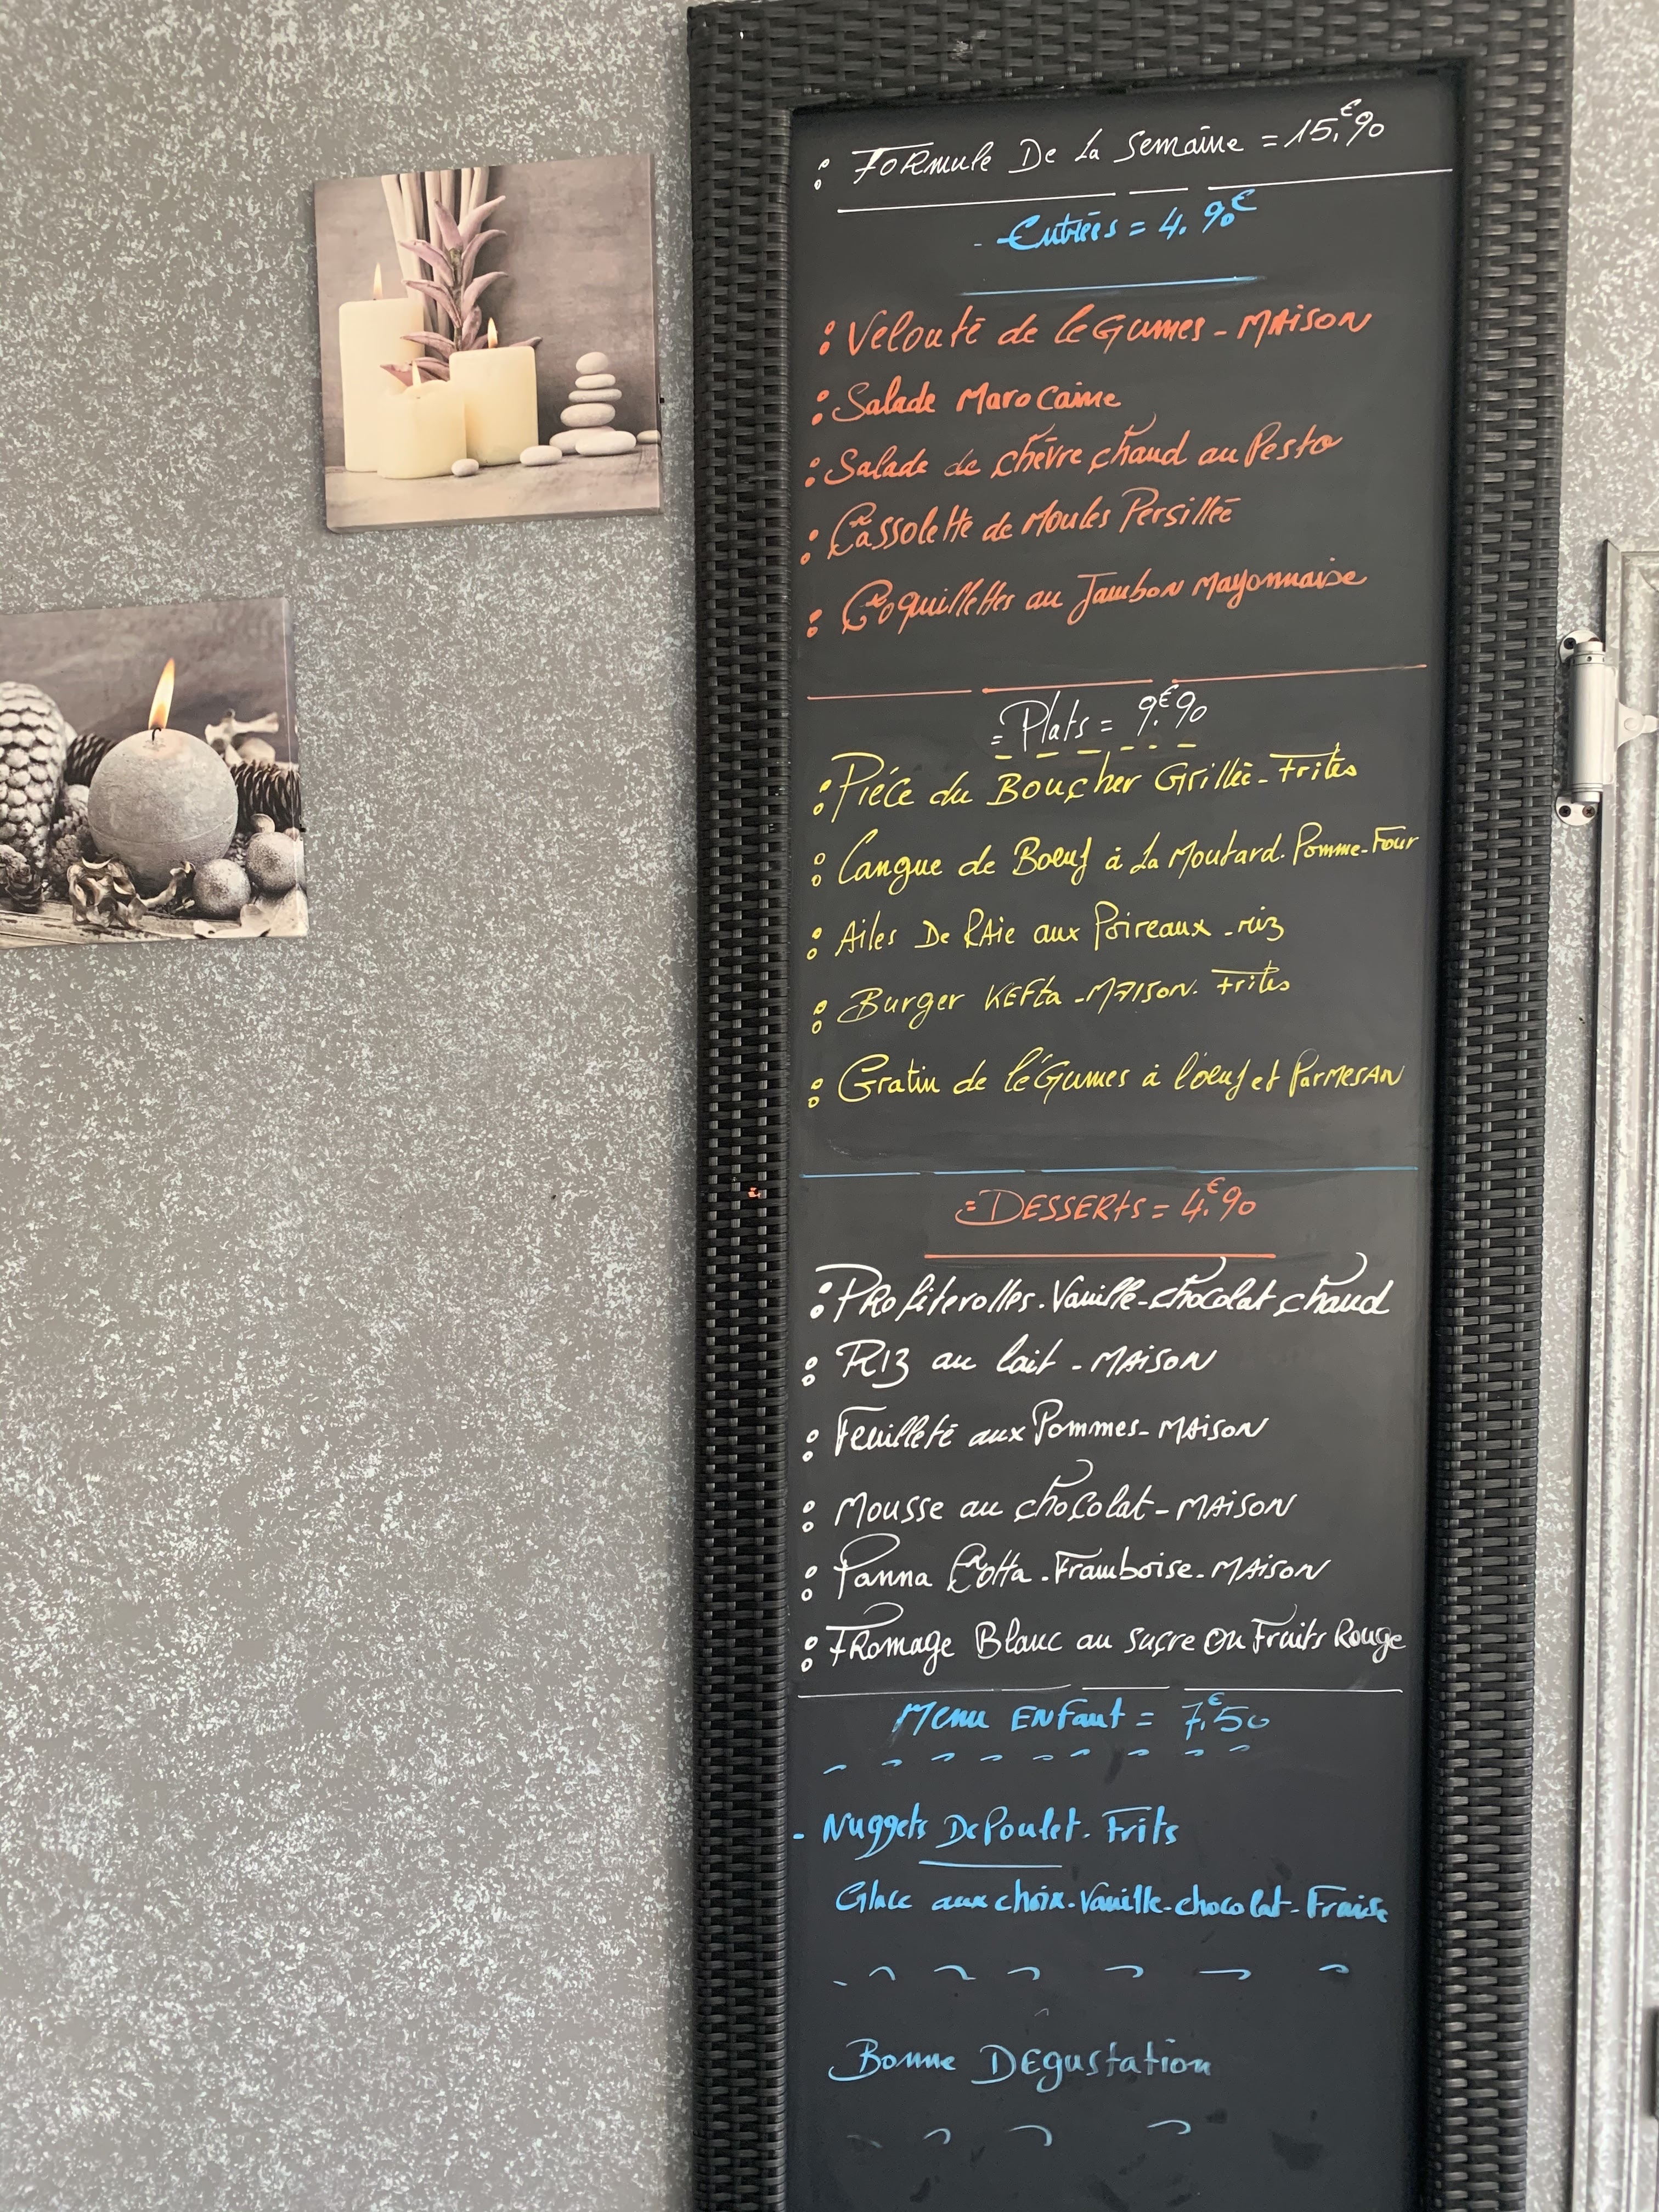 : Formule De La Semaine = 15,€90
- Entrées = 4.90€
: Velouté de leGumes - MAison
: Salade Marocaine
: Salade de chèvre chaud au Pesto
: Cassolette de Moules Persillée
: Coquillettes au Jambon Mayonnaise
= Plats = 9,€90
: Piéce du Boucher Grillée - Frites
: Langue de Boeuf à La Moutard. Pomme-Four
: Ailes De RAie aux Poireaux - riz
: Burger KEFta - MAison. Frites
: Gratin de léGumes à l'oeuf et ParmesAN
= Desserts = 4,€90
: Profiterolles. Vanille - chocolat chaud
: Riz au lait - MAison
: Feuilleté aux Pommes - MAison
: Mousse au chocolat - MAison
: Panna Cotta - Framboise - MAison
: Fromage Blanc au sucre Ou Fruits Rouge
Menu Enfant = 7,€50
- Nuggets De Poulet. Frits
Glace aux choix. Vanille - chocolat - Fraise
Bonne Dégustation